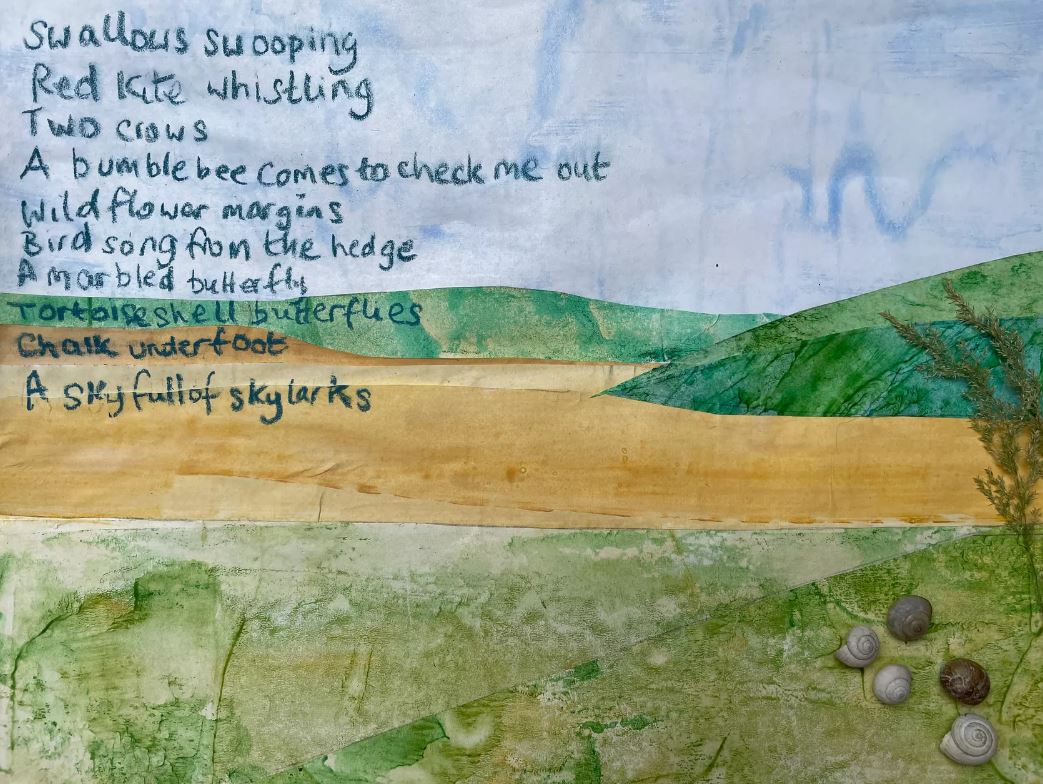 Swallows swooping
Red kite whistling
Two crows
A bumblebee comes to check me out
Wildflower margins
Bird song from the hedge
A marbled butterfly
Tortoiseshell butterflies
Chalk underfoot
A sky full of skylarks